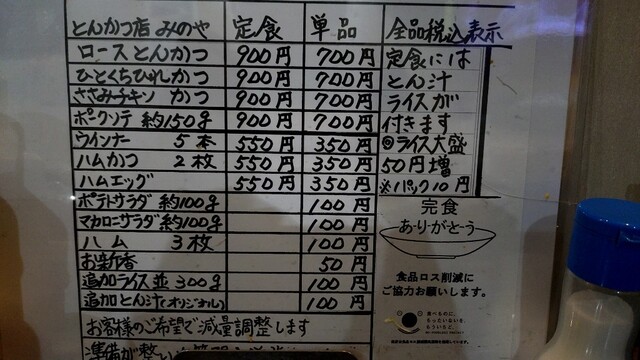 とんかつ店 みのや 定食 単品 全品税込表示
ロースとんかつ 900円 700円 定食には
ひとくちひれかつ 900円 700円 とん汁
ささみチキン かつ 900円 700円 ライスが
ポークソテ 約150g 900円 700円 付きます
ウインナー 5本 550円 350円 ◎ライス大盛
ハムかつ 2枚 550円 350円 50円増
ハムエッグ 550円 350円 ※パック10円
ポテトサラダ 約100g 100円
マカロニサラダ 約100g 100円
ハム 3枚 100円
お新香 50円
追加ライス並 300g 100円
追加とん汁(オリジナル) 100円
お客様のご希望で減量調整します
完食
ありがとう
食品ロス削減に
ご協力お願いします。
食べものに、
もったいないを、
もういちど。